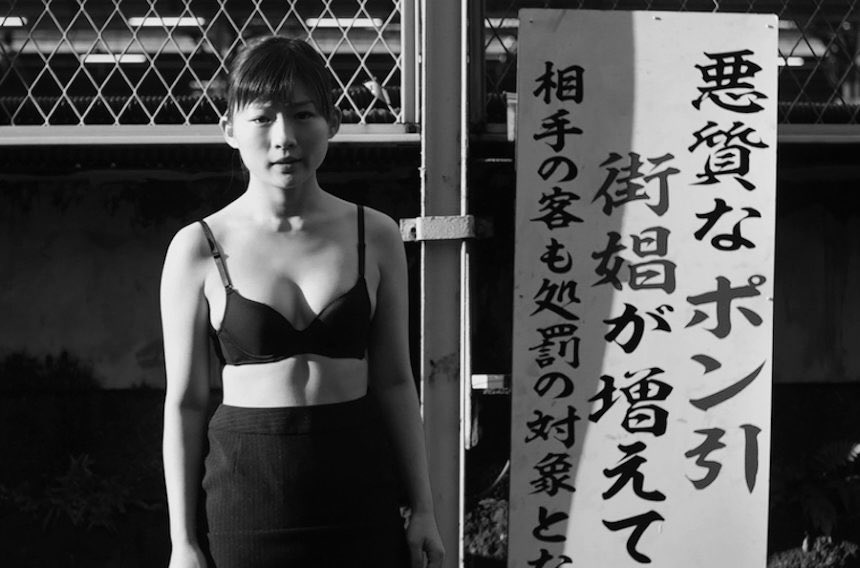 悪質なポン引
街娼が増えて
相手の客も処罰の対象とな